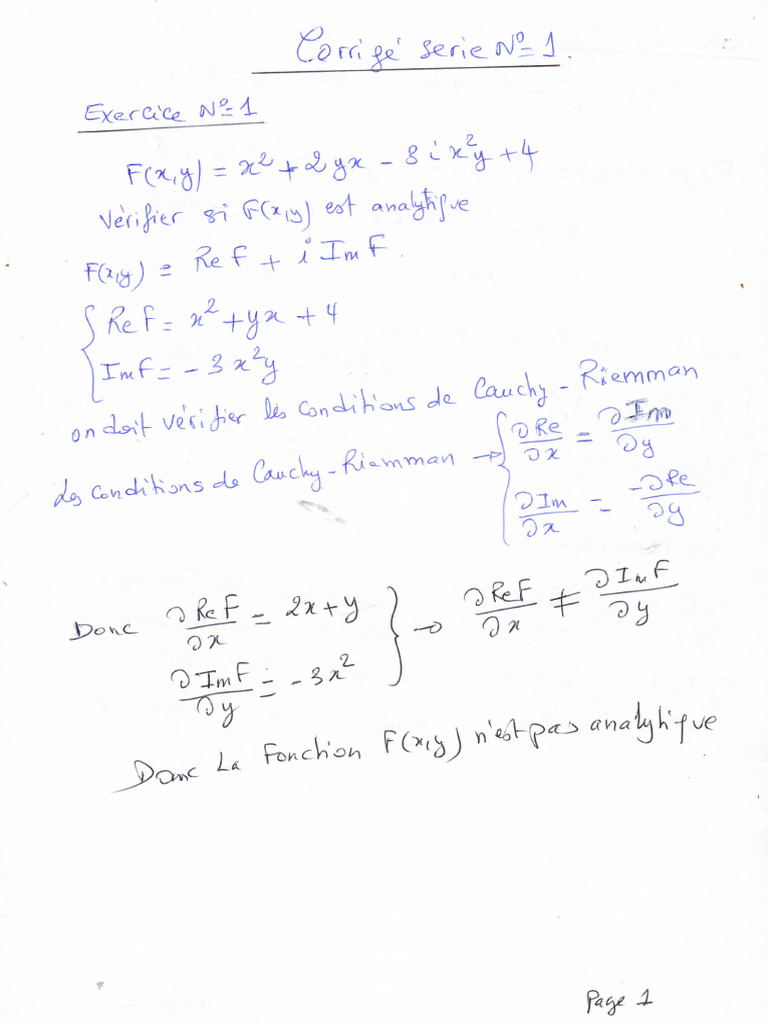 Corrigé serie N°1.
Exercice N°1
F(x,y) = x² + 2yx - 3ix²y + 4
Vérifier si F(x,y) est analytique
F(x,y) = Re F + i Im F.
{ Re F = x² + yx + 4
Im F = - 3x²y
on doit vérifier les conditions de Cauchy-Riemman
Les conditions de Cauchy-Riemman → { ∂Re/∂x = ∂Im/∂y
∂Im/∂x = -∂Re/∂y
Donc ∂ReF/∂x = 2x+y } → ∂ReF/∂x ≠ ∂ImF/∂y
∂ImF/∂y = -3x²
Donc La Fonction F(x,y) n'est pas analytique
Page 1